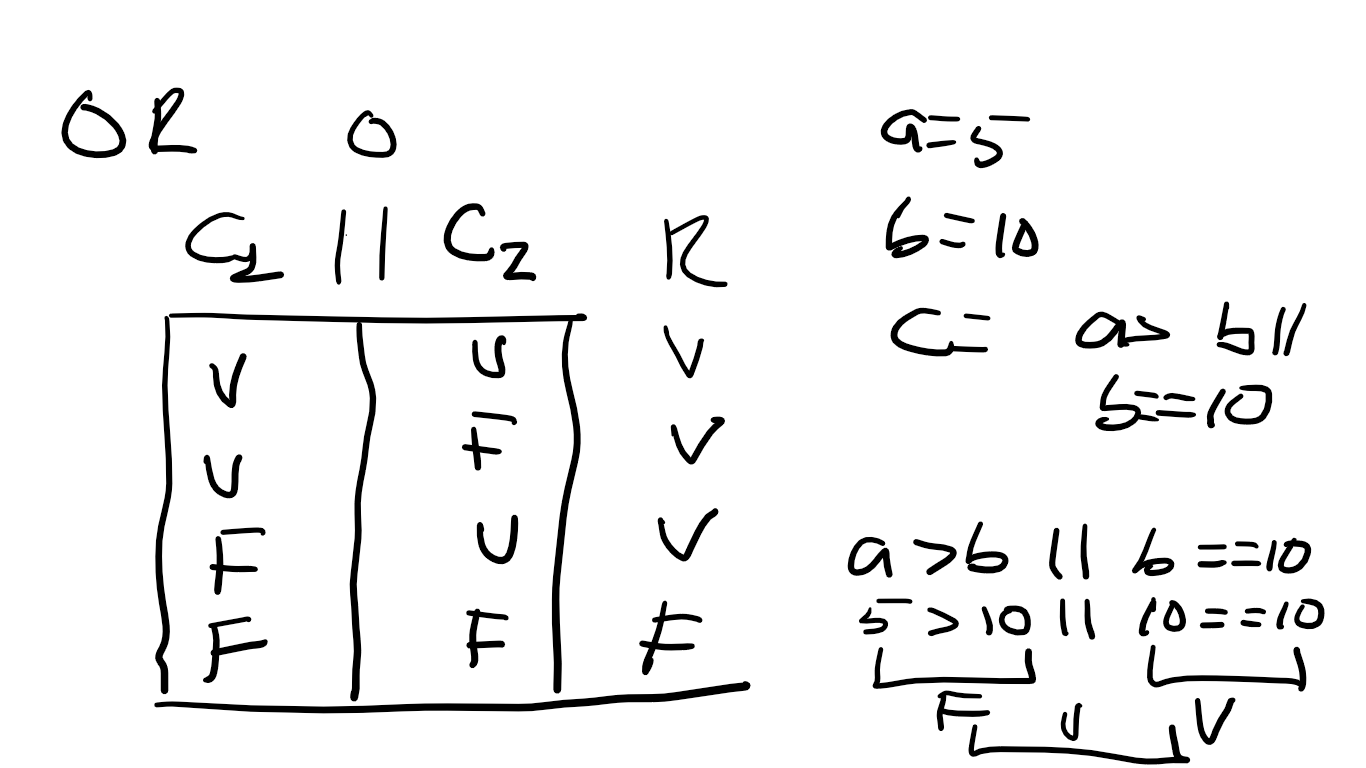 OR O
C1 || C2 R
V V V
V F V
F V V
F F F
a=5
b=10
C= a> b||
b==10
a>b || b ==10
5>10 || 10==10
F V V